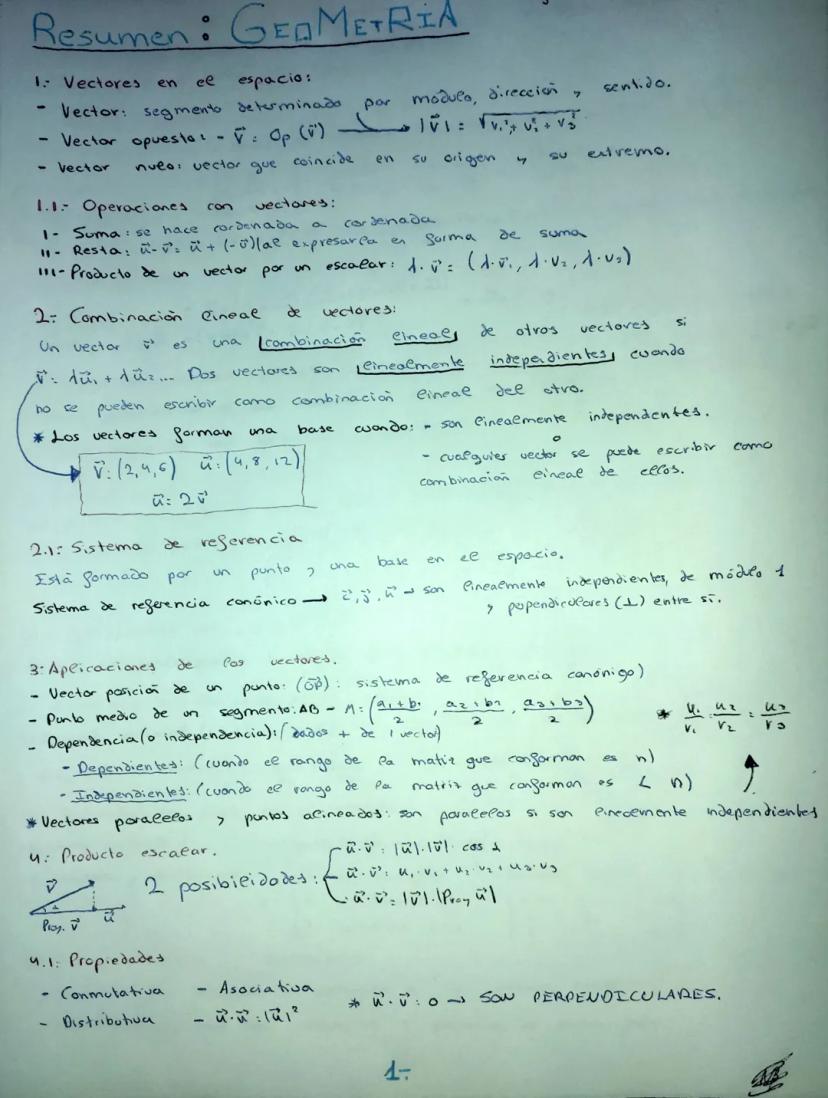 Resumen: GEOMETRIA
1.- Vectores en el espacio:
- Vector: segmento determinado por módulo, dirección y sentido.
- Vector opuesto: - v⃗: Op (v⃗) → |v⃗| = √v₁² + v₂² + v₃²
- Vector nulo: vector que coincide en su origen y su extremo.
1.1.- Operaciones con vectores:
I- Suma: se hace cordenada a cordenada
II- Resta: u⃗ - v⃗ = u⃗ + (-v⃗) (al expresarla en forma de suma
III- Producto de un vector por un escalar: λ · v⃗ = (λ · v⃗₁, λ · v₂, λ · v₃)
2.- Combinación lineal de vectores:
Un vector v⃗ es una combinación lineal de otros vectores si
v⃗: λu⃗₁ + λu⃗₂... Dos vectores son linealmente independientes cuando
no se pueden escribir como combinación lineal del otro.
* Los vectores forman una base cuando: - son linealmente independientes.
- cualquier vector se puede escribir como
combinación lineal de ellos.
v⃗: (2,4,6) u⃗: (4,8,12)
u⃗ = 2v⃗
2.1: Sistema de referencia
Está formado por un punto y una base en el espacio.
Sistema de referencia canónico → i⃗, j⃗, k⃗ → son linealmente independientes, de módulo 1
y perpendiculares (⊥) entre sí.
3: Aplicaciones de los vectores.
- Vector posición de un punto: (OP⃗): sistema de referencia canónigo)
- Punto medio de un segmento: AB - M: (a₁+b₁/2, a₂+b₂/2, a₃+b₃/2)
* u₁/v₁ = u₂/v₂ = u₃/v₃
- Dependencia (o independencia): (dados + de 1 vector)
- Dependientes: (cuando el rango de la matiz que conforman es n)
- Independientes: (cuando el rango de la matriz que conforman es < n)
* Vectores paralelos y puntos alineados: son paralelos si son linealmente independientes
4: Producto escalar.
2 posibilidades:
u⃗ · v⃗: |u⃗| · |v⃗| · cos α
u⃗ · v⃗: u₁ · v₁ + u₂ · v₂ + u₃ · v₃
u⃗ · v⃗ = |v⃗| · |Proy u⃗|
v⃗
α
Proy. v⃗ u⃗
4.1: Propiedades
- Conmutativa - Asociativa
* u⃗ · v⃗ : 0 → SON PERPENDICULARES.
- Distributiva - u⃗ · u⃗ : |u⃗|²
1-